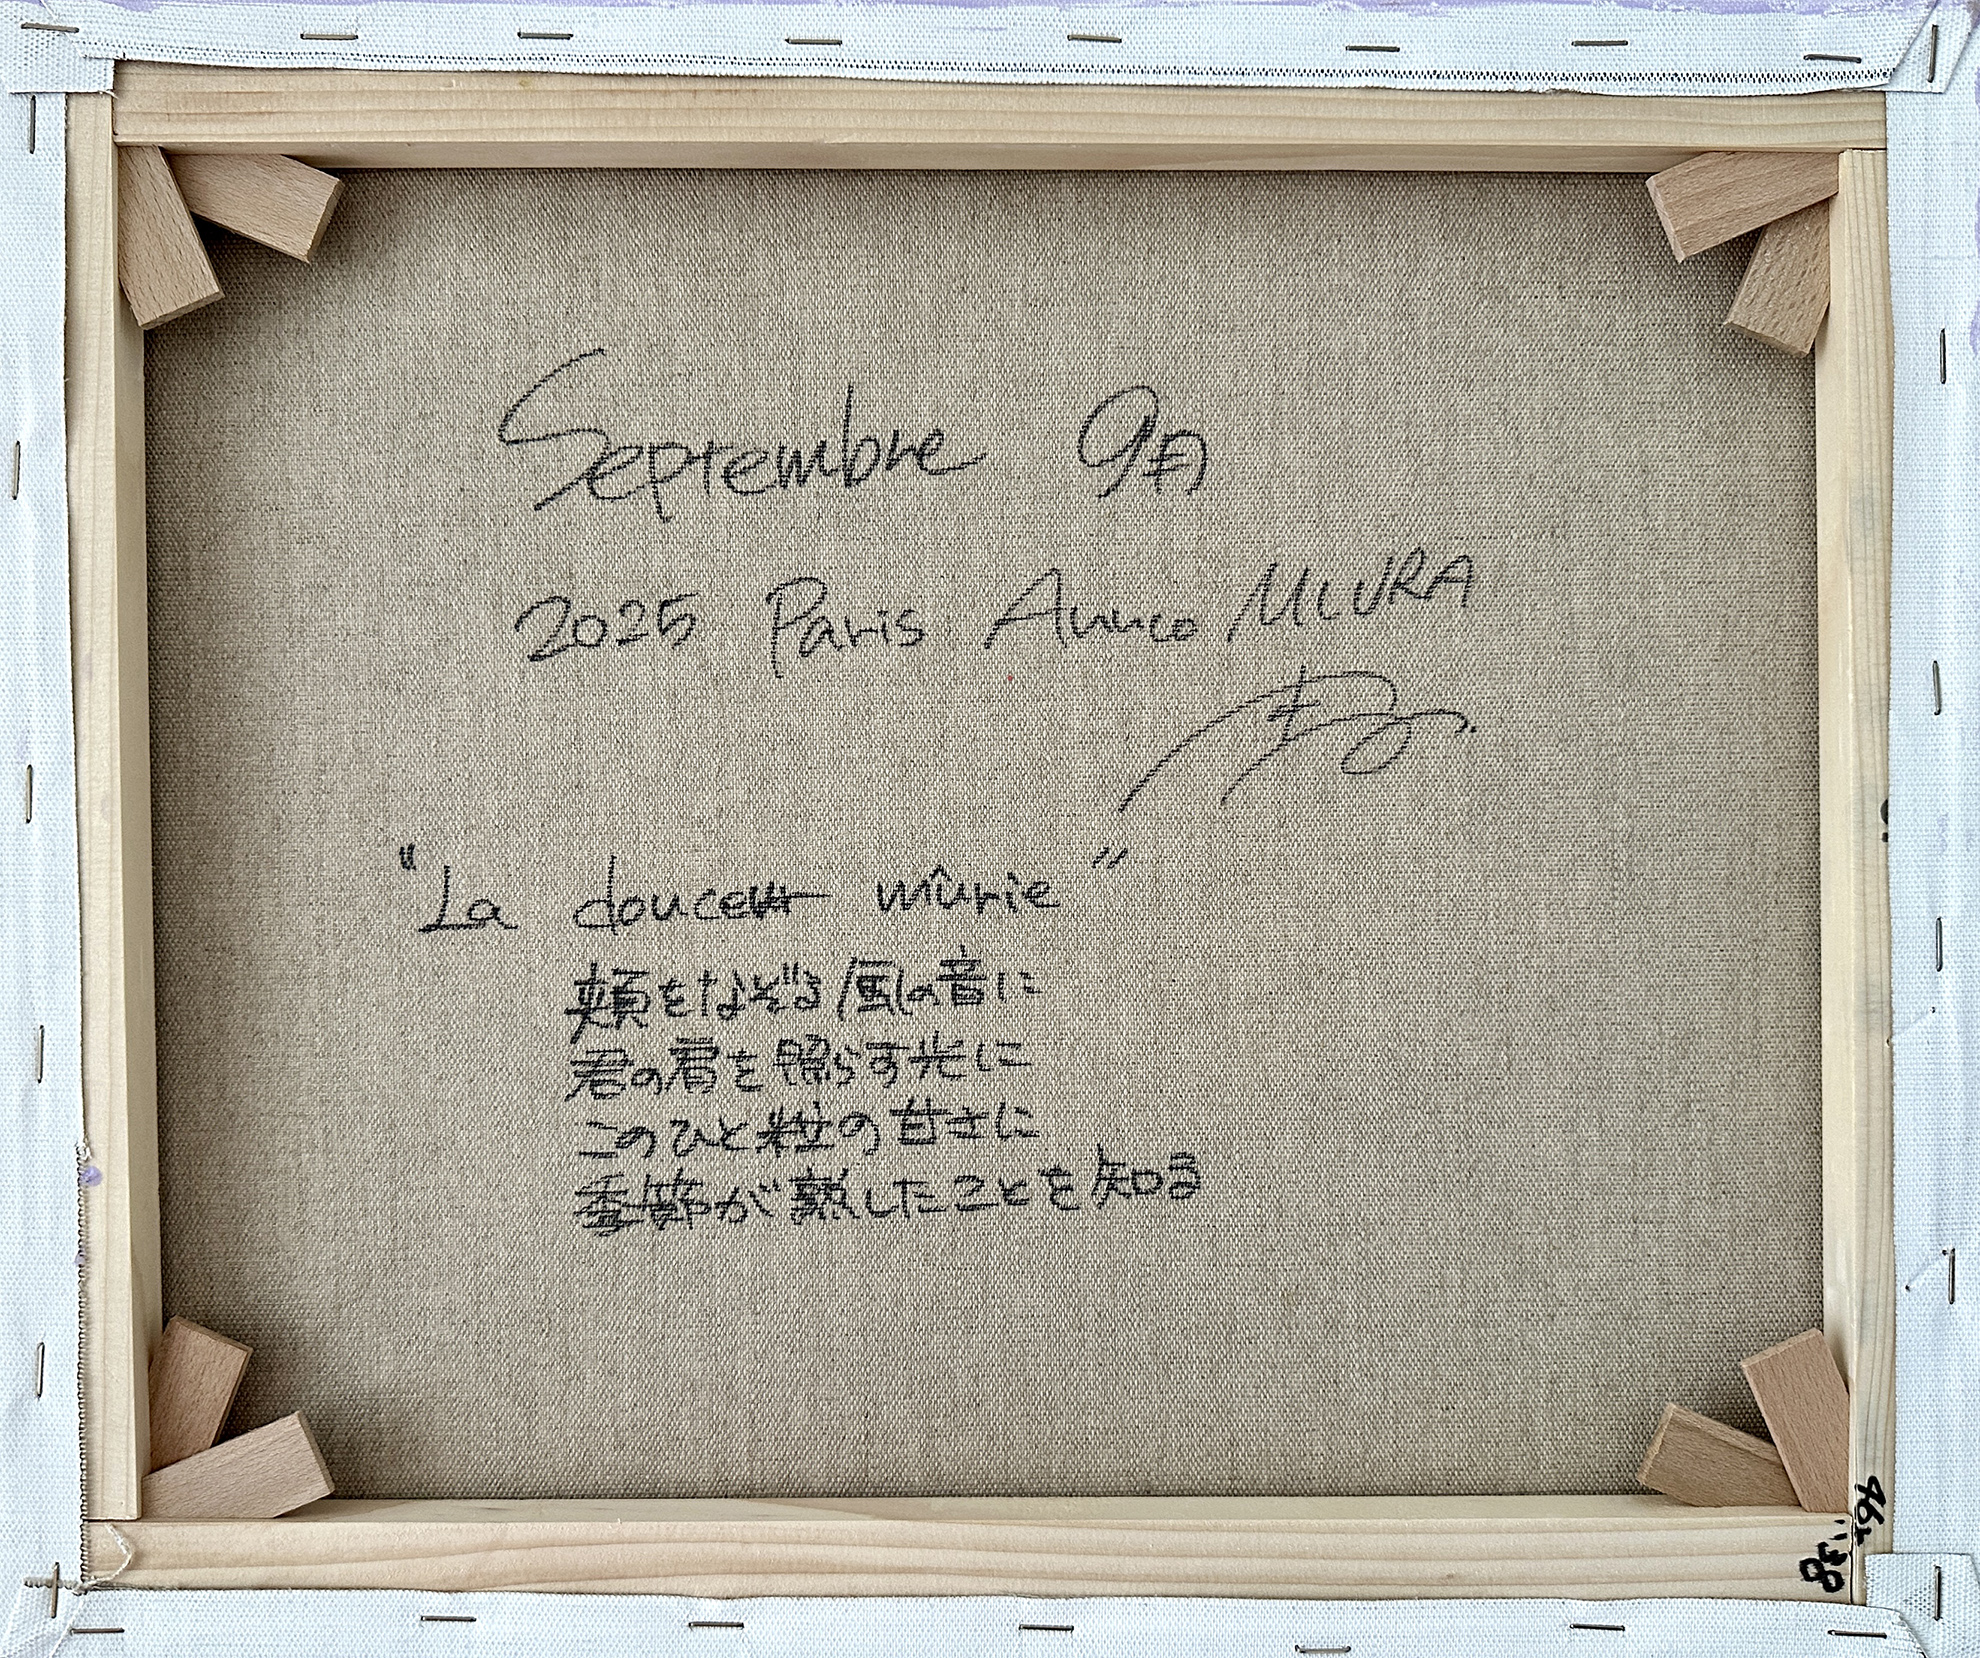 Septembre 9月
2025 Paris Annco MIURA
"La douceur mûrie"
頬をなぞる風の音に
君の肩を照らす光に
このひと粒の甘さに
季節が熟したことを知る